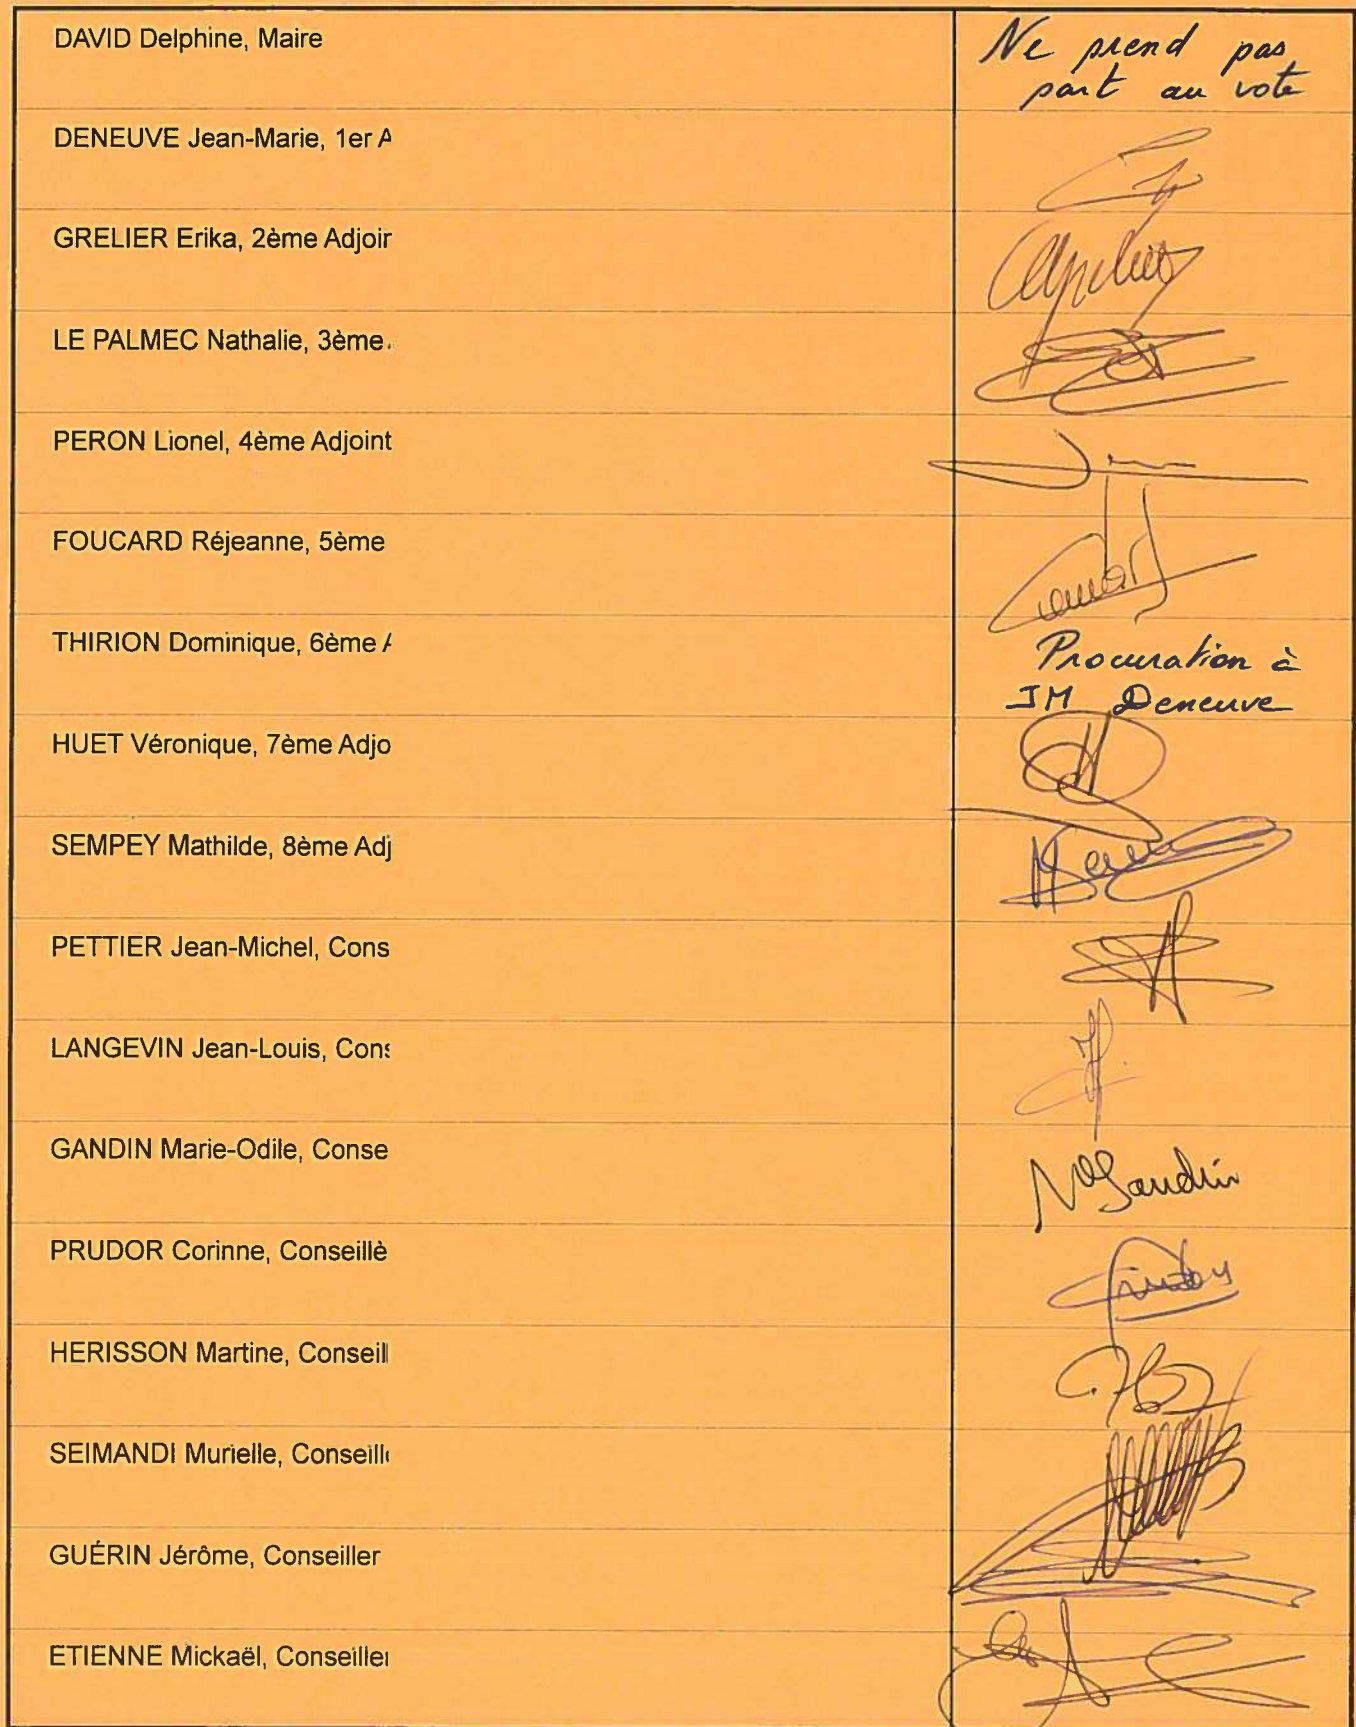 DAVID Delphine, Maire
Ne prend pas
part au vote
DENEUVE Jean-Marie, 1er A
GRELIER Erika, 2ème Adjoin
LE PALMEC Nathalie, 3ème
PERON Lionel, 4ème Adjoint
FOUCARD Réjeanne, 5ème
THIRION Dominique, 6ème A
Procuration à
JM Deneuve
HUET Véronique, 7ème Adjo
SEMPEY Mathilde, 8ème Adj
PETTIER Jean-Michel, Cons
LANGEVIN Jean-Louis, Cons
GANDIN Marie-Odile, Conse
MOGandin
PRUDOR Corinne, Conseillè
HERISSON Martine, Conseill
SEIMANDI Murielle, Conseill
GUÉRIN Jérôme, Conseiller
ETIENNE Mickaël, Conseiller